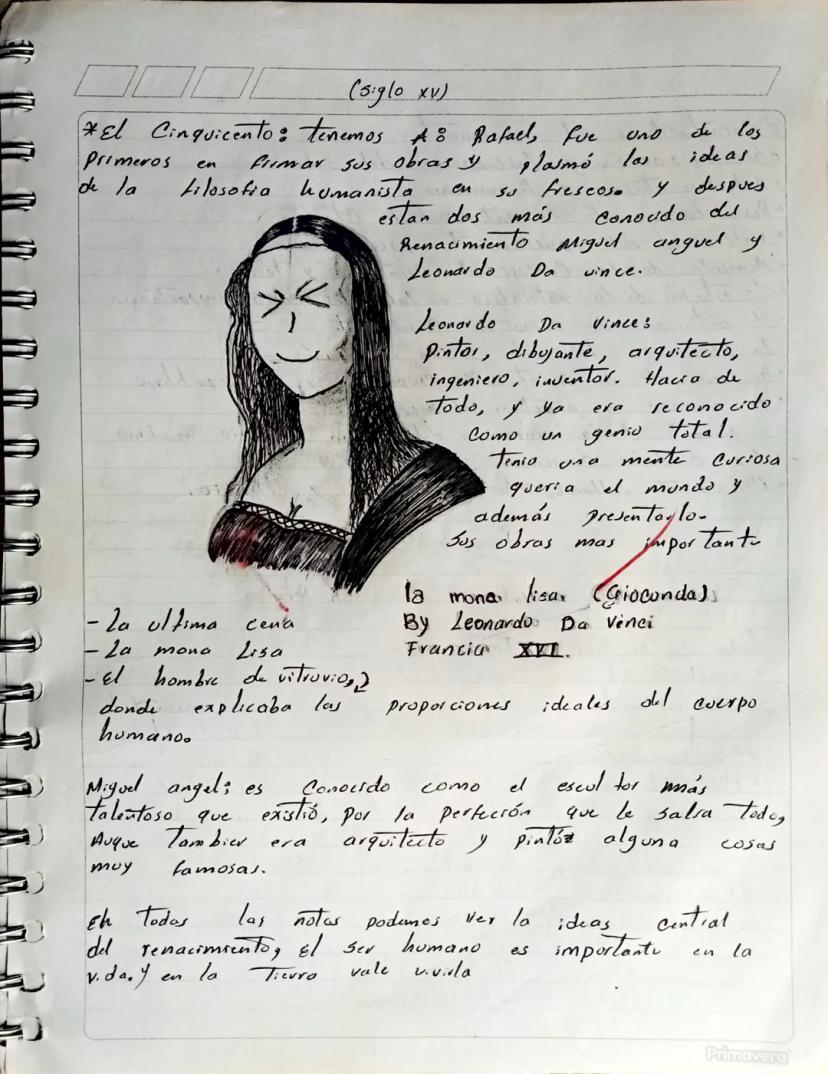 (siglo XV)
*El Cinquicento: tenemos A: Rafael, fue uno de los
primeros en firmar sus obras y plasmó las ideas
de la filosofia humanista en su frescos. y despues
estan dos más conocido del
Renacimiento Miguel anguel y
Leonardo Da vince.
Leonardo Da Vince:
pintor, dibujante, arquitecto,
ingeniero, inventor. Hacia de
todo, y ya era reconocido
como un genio total.
Tenio una mente curiosa
queria el mundo y
además presentarlo.
Sus obras mas importante
la mona lisa. (Gioconda)
By Leonardo Da Vinci
Francia XVI.
- La ultima cena
- La mona Lisa
- El hombre de vitruvio,
donde explicaba las proporciones ideales del cuerpo
humano.
Miguel angel; es conocido como el escultor más
talentoso que existió, por la perfeción que le salia todo,
Auque tambien era arquitecto y pintó alguna cosas
muy famosas.
En todas las notas podemos ver la ideas central
del renacimiento, El ser humano es importante en la
vida. y en la Tierra vale vivirla
Primavera